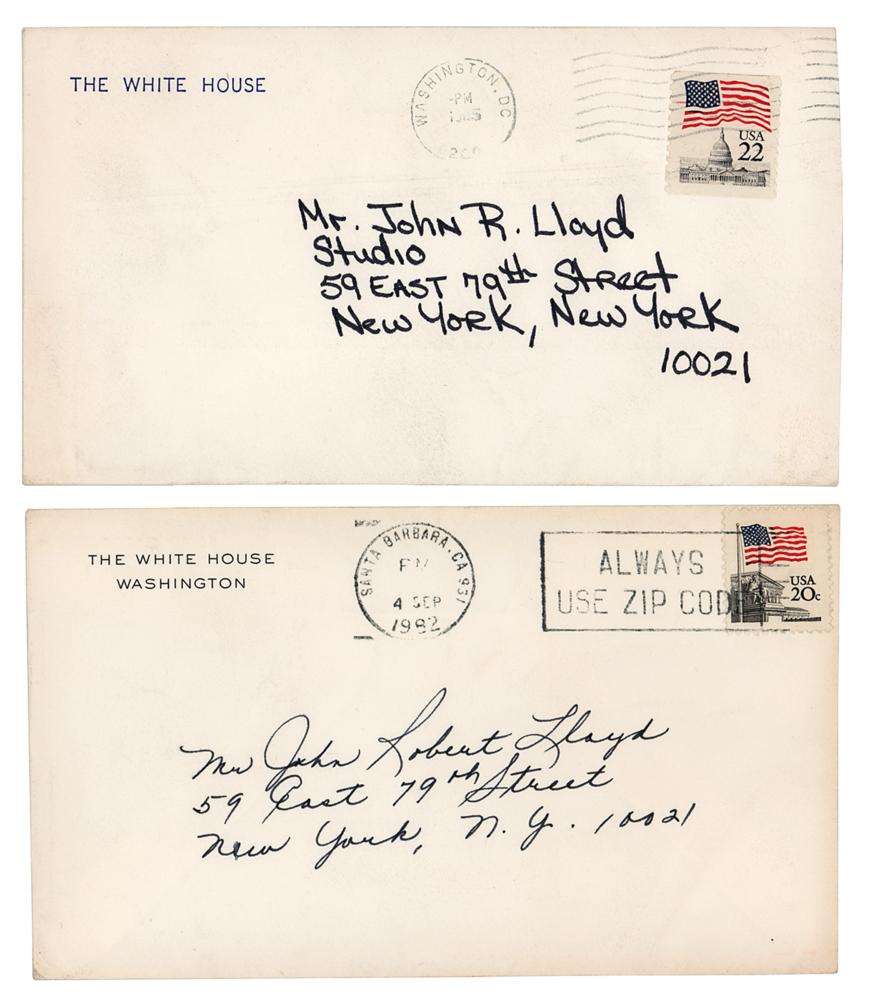 THE WHITE HOUSE
WASHINGTON, DC
PM
USA
22
Mr. John R. Lloyd
Studio
59 EAST 79th Street
New York, New York
10021
THE WHITE HOUSE
WASHINGTON
SANTA BARBARA, CA 931
PM
4 SEP
1982
ALWAYS
USE ZIP CODE
USA
20c
Mr John Robert Lloyd
59 East 79th Street
New York, N.Y. 10021